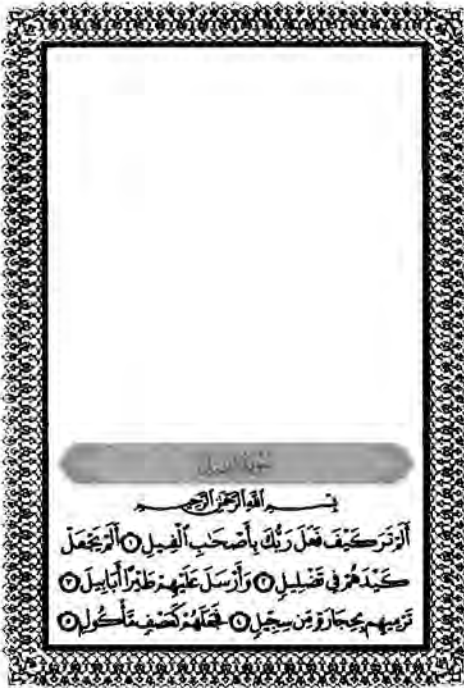 سُورَةُ الفِيلِ
بِسْمِ اللَّهِ الرَّحْمَٰنِ الرَّحِيمِ
أَلَمْ تَرَ كَيْفَ فَعَلَ رَبُّكَ بِأَصْحَٰبِ ٱلْفِيلِ ١ أَلَمْ يَجْعَلْ
كَيْدَهُمْ فِى تَضْلِيلٍ ٢ وَأَرْسَلَ عَلَيْهِمْ طَيْرًا أَبَابِيلَ ٣
تَرْمِيهِم بِحِجَارَةٍ مِّن سِجِّيلٍ ٤ فَجَعَلَهُمْ كَعَصْفٍ مَّأْكُولٍ ٥